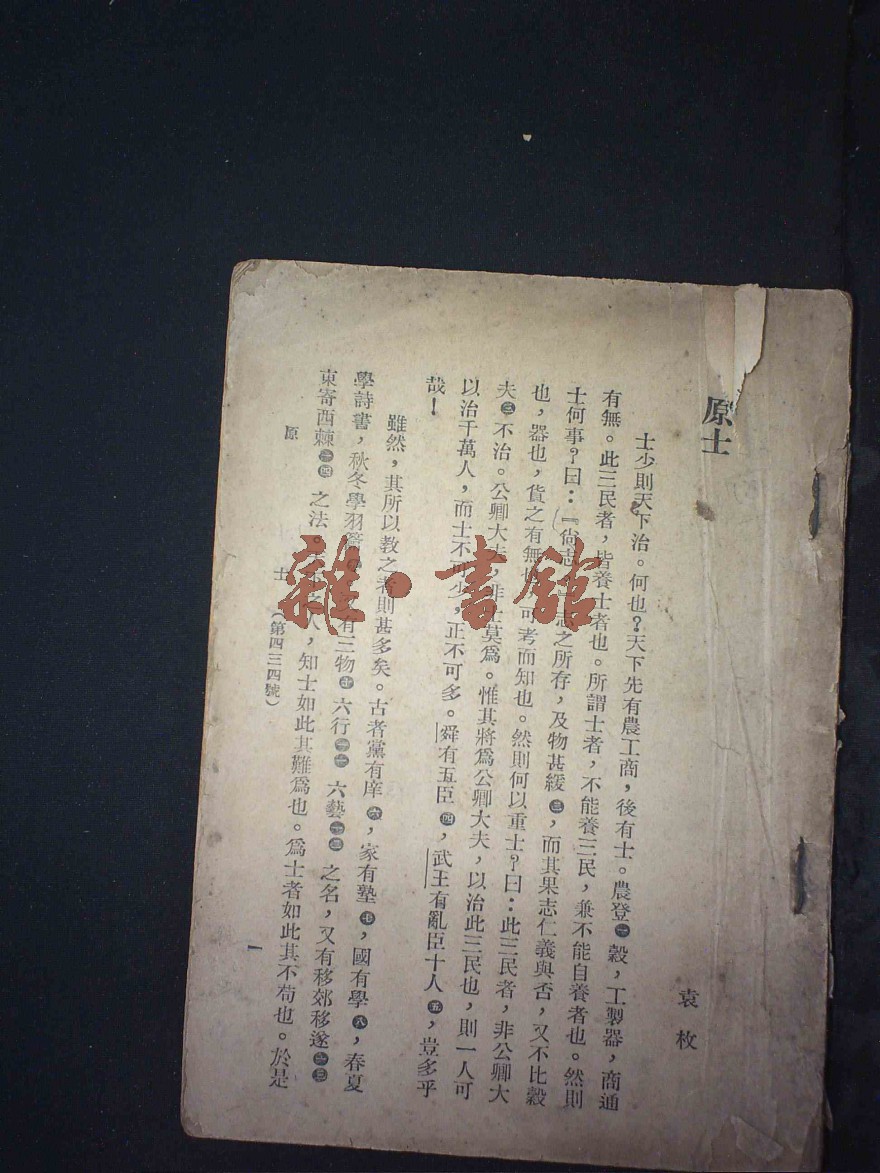 原士
袁枚
士少則天下治。何也?天下先有農工商,後有士。農登㊀穀,工製器,商通
有無。此三民者,皆養士者也。所謂士者,不能養三民,兼不能自養者也。然則
士何事?曰:『尚志。志之所存,及物甚緩㊁,而其果志仁義與否,又不比穀
也,器也,貨之有無也,可考而知也。然則何以重士?曰:此三民者,非公卿大
夫㊂不治。公卿大夫,非士莫爲。惟其將爲公卿大夫,以治此三民也,則一人可
以治千萬人,而士不可少,正不可多。舜有五臣㊃,武王有亂臣十人㊄,豈多乎
哉!
雖然,其所以教之者則甚多矣。古者黨有庠㊅,家有塾㊆,國有學㊇,春夏
學詩書,秋冬學羽籥 有三物 六行 六藝 之名,又有移郊移遂
東寄西棘 之法。 人,知士如此其難爲也。爲士者如此其不苟也。於是
原士
(第四三四號)
一
雜·書館